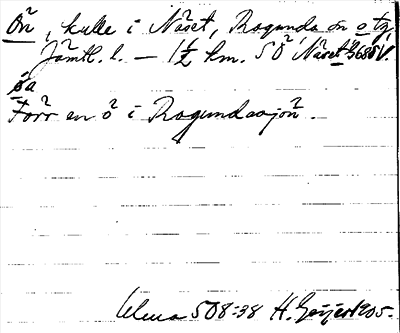 Ön, kulle i Näset, Ragunda sn o tg
Jämtl. l. — 1½ km. SÖ Näset 3685 V.
på
Förr en ö i Ragundasjön.
Ulma 508:38 H. Geijer 1905.